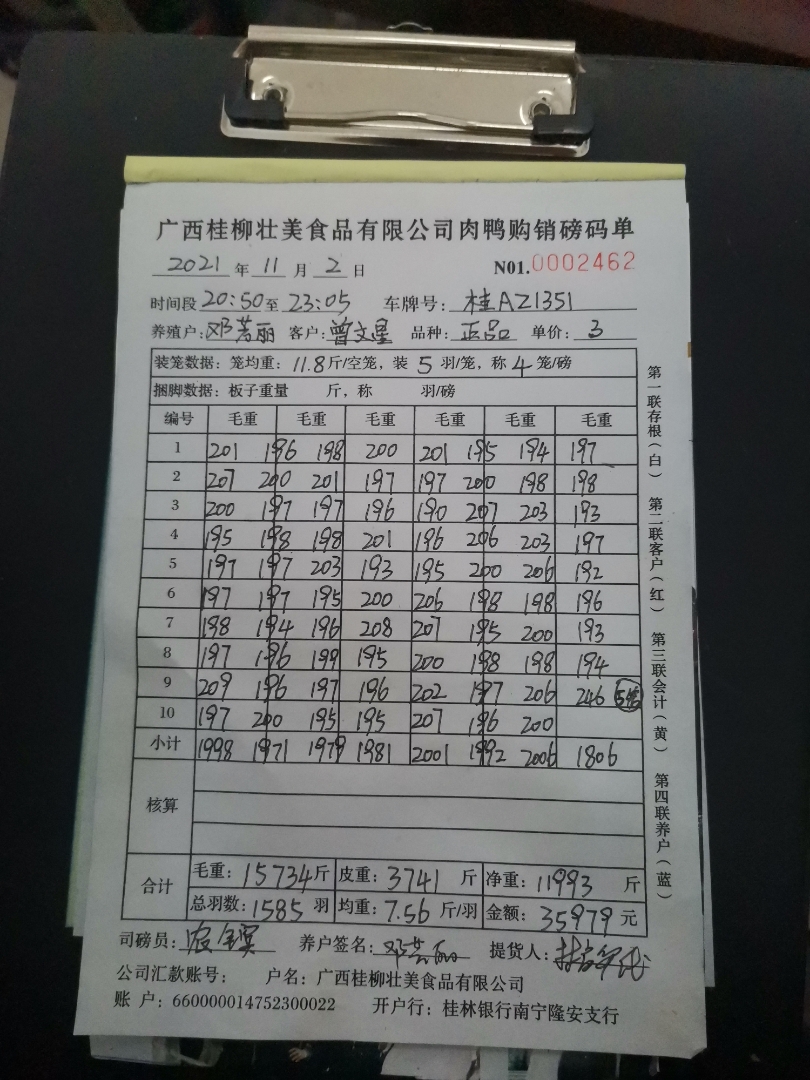 广西桂柳壮美食品有限公司肉鸭购销磅码单
2021年 11月 2日 N01.0002462
时间段20:50至23:05 车牌号：桂AZ1351
养殖户：邓芳丽 客户：曾文星 品种：正品 单价：3
装笼数据：笼均重：11.8斤/空笼，装5羽/笼，称4笼/磅
捆脚数据：板子重量 斤，称 羽/磅
编号 毛重 毛重 毛重 毛重 毛重 毛重
1 201 196 198 200 201 195 194 197
2 207 200 201 197 197 200 198 198
3 200 197 197 196 190 207 203 193
4 195 198 198 201 196 206 203 197
5 197 197 203 193 195 200 206 192
6 197 197 195 200 206 198 198 196
7 198 194 196 208 207 195 200 193
8 197 196 199 195 200 198 198 194
9 209 196 197 196 202 197 206 246
10 197 200 195 195 207 196 200
小计 1998 1971 1979 1981 2001 1992 2006 1806
核算
合计 毛重：15734斤 皮重：3741斤 净重：11993斤
总羽数：1585羽 均重：7.56斤/羽 金额：35979元
司磅员： 养户签名：邓芳丽 提货人：
公司汇款账号： 户名：广西桂柳壮美食品有限公司
账户：660000014752300022 开户行：桂林银行南宁隆安支行
第一联存根（白） 第二联客户（红） 第三联会计（黄） 第四联养户（蓝）